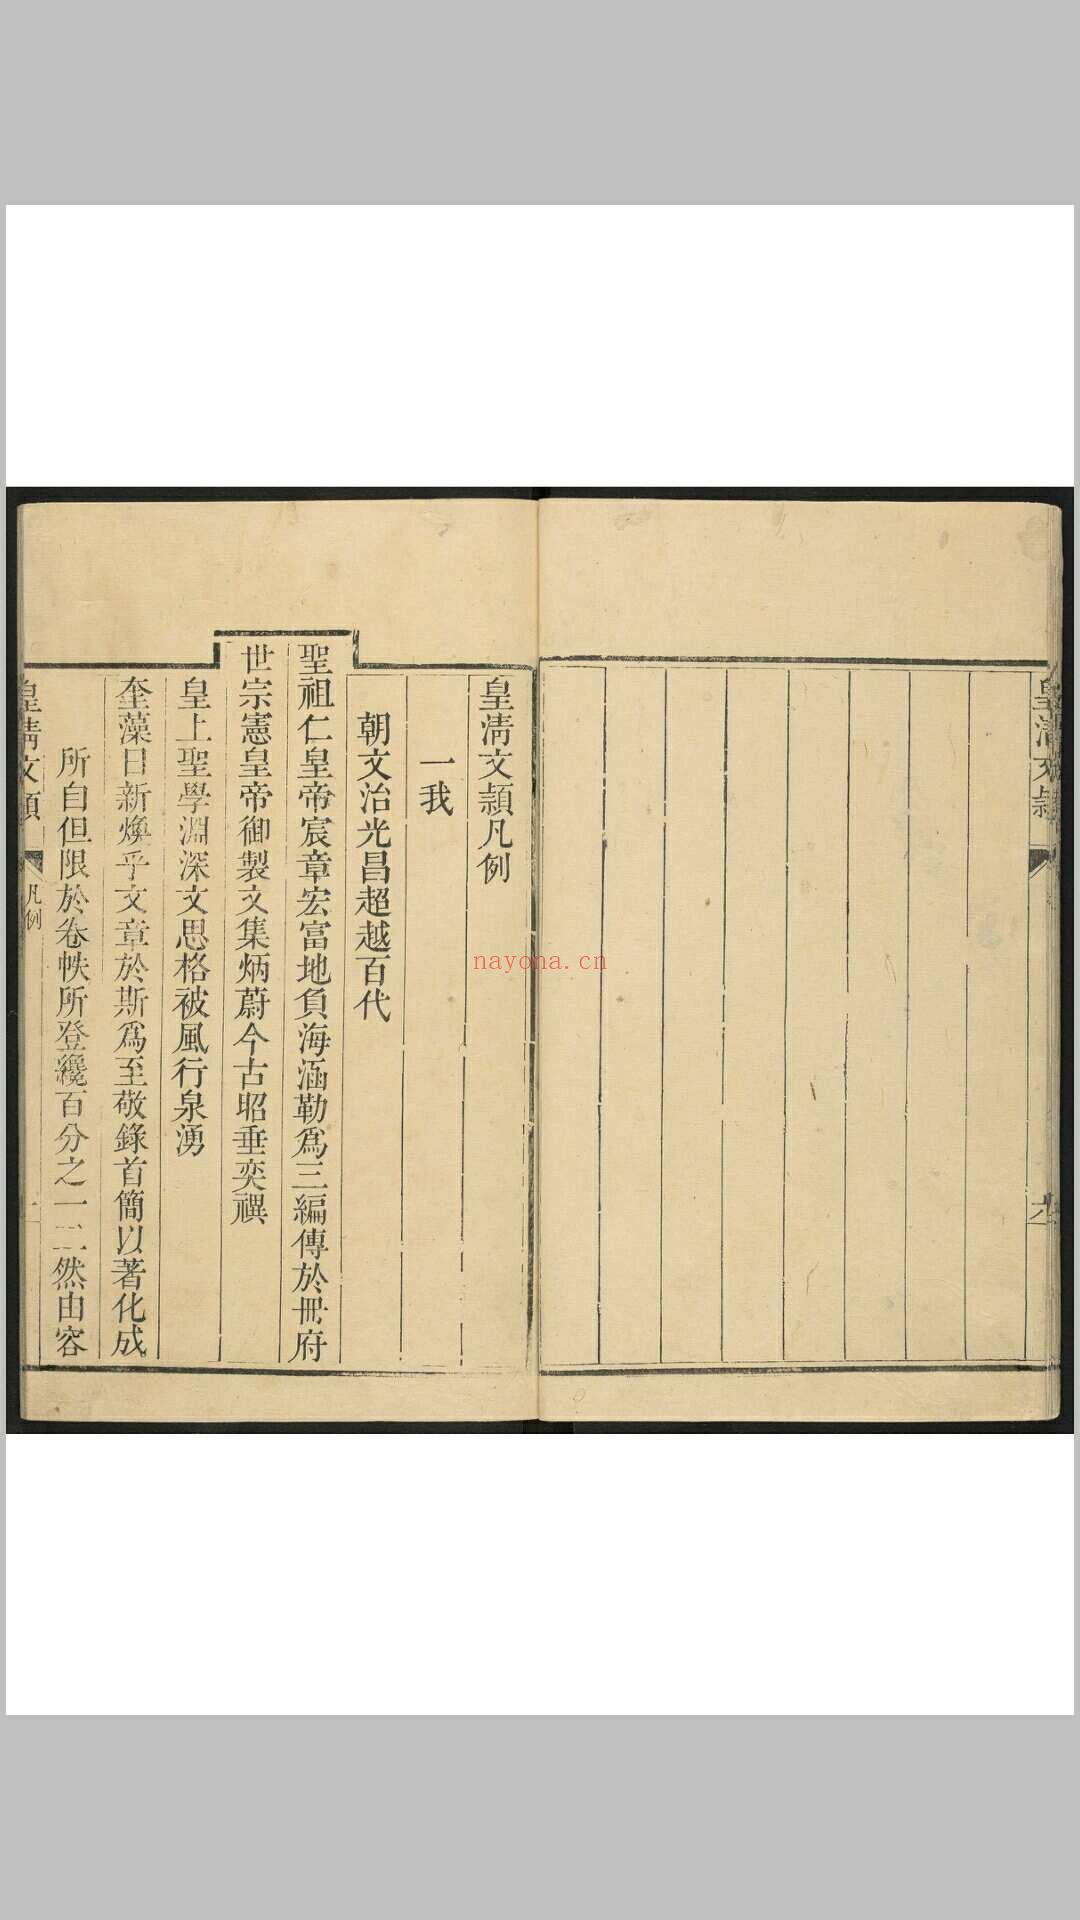 皇清文穎
六
皇清文穎凡例
一我
朝文治光昌超越百代
聖祖仁皇帝宸章宏富地負海涵勒爲三編傳於冊府
世宗憲皇帝御製文集炳蔚今古昭垂奕禩
皇上聖學淵深文思格被風行泉湧
奎藻日新煥乎文章於斯爲至敬錄首簡以著化成
所自但限於卷帙所登纔百分之一二然由容
皇清文穎
凡例
一
nayona.cn